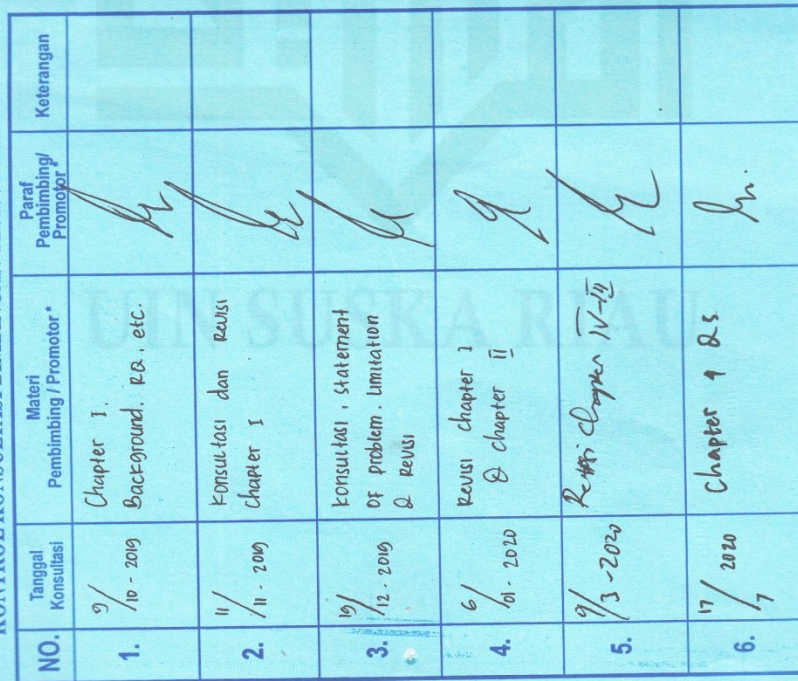 NO.
Tanggal
Konsultasi
Materi
Pembimbing / Promotor *
Paraf
Pembimbing/
Promotor *
Keterangan
1.
9/10 - 2019
Chapter I.
Background. RQ. etc.
2.
11/11 - 2019
Konsultasi dan Revisi
Chapter I
3.
19/12 - 2019
Konsultasi, statement
of problem. Limitation
& Revisi
4.
6/01 - 2020
Revisi chapter I
& chapter II
5.
9/3 - 2020
Chapter IV-III
6.
17/7 2020
Chapter 4 & 5
UIN SUSKA RIAU